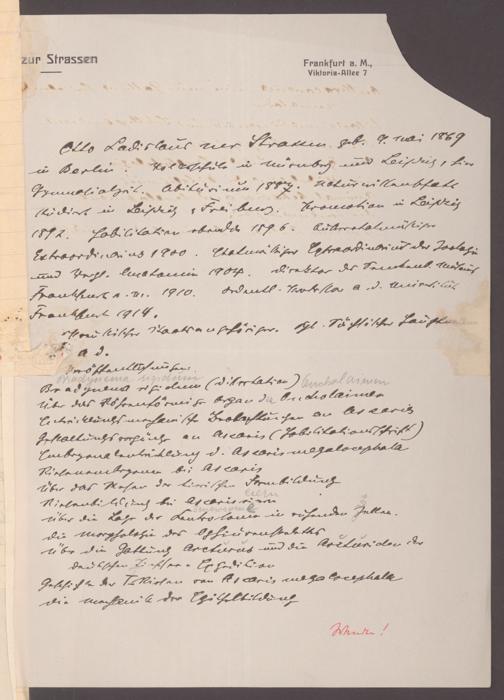 zur Strassen
Frankfurt a. M.,
Viktoria-Allee 7
Otto Ladislaus zur Strassen geb. 9. Mai 1869
in Berlin. Volksschule in Nürnberg und Leipzig,
Gymnasialzeit. Abiturium 1887. Naturwissenschaften
studiert in Leipzig, Freiburg. Promotion in Leipzig
1892. Habilitation ebenda 1896. Außeretatmäßiger
Extraordinarius 1900. Etatmäßiger Extraordinarius der Zoologie
und vergl. Anatomie 1904. Direktor des Senckenb. Museums
Frankfurt a. M. 1910. Ordentl. Professor a. d. Universität
Frankfurt 1914.
Preußischer Staatsangehöriger. kgl. Sächsischer
a. D.
Veröffentlichungen:
Bradynema rigidum
Bradynema rigidum (Dissertation) Ascholaimen
Über das röhrenförmige Organ der Ascholaimen
Entwicklungsmechanische Beobachtungen an Ascaris
Gestaltungsvorgänge an Ascaris (Habilitationsschrift)
Embryonalentwicklung d. Ascaris megalocephala
Riesenembryonen bei Ascaris
Über das Wesen der tierischen Formbildung
Riesenbildung bei Ascariseiern
eiern
Über die Lage der Centrosomen in ruhenden Zellen.
Die Morphologie des Apfelröhrenskeletts
Über die Gattung Arcturus und die Arcturiden der
deutschen Tiefsee-Expedition
Geschichte der T-Riesen von Ascaris megalocephala
Die Mechanik der Epithelbildung